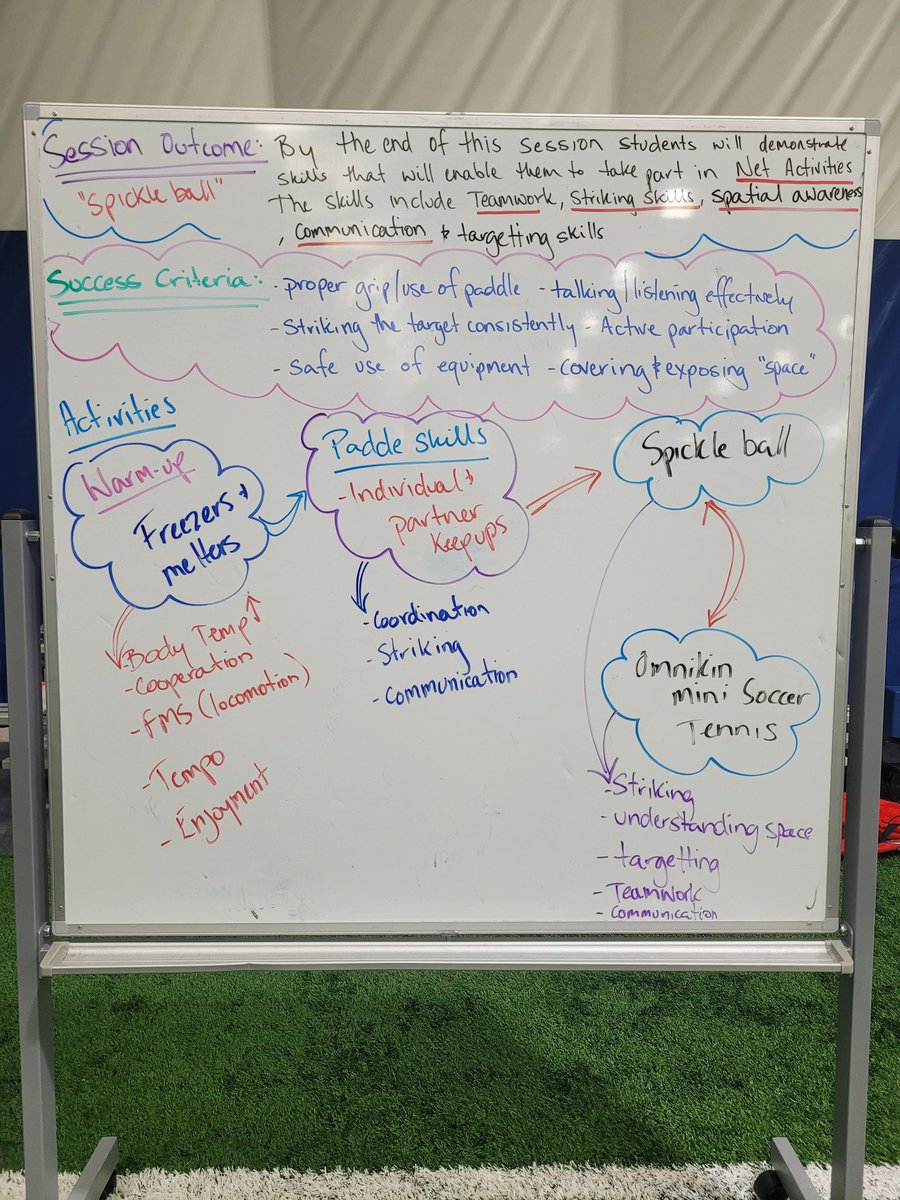 Session Outcome:
"Spickle ball"
By the end of this session students will demonstrate
skills that will enable them to take part in Net Activities
The skills include Teamwork, Striking skills, spatial awareness
, communication & targetting skills
Success Criteria:
- proper grip/use of paddle - talking/listening effectively
- Striking the target consistently - Active participation
- Safe use of equipment - covering & exposing "space"
Activities
Warm-up
Freezers &
melters
- Body Temp ↑
- Cooperation
- FMS (locomotion)
- Tempo
- Enjoyment
Padde skills
- Individual &
partner
Keepups
- Coordination
- Striking
- Communication
Spickle ball
Omnikin
mini Soccer
Tennis
- Striking
- understanding space
- targetting
- Teamwork
- Communication